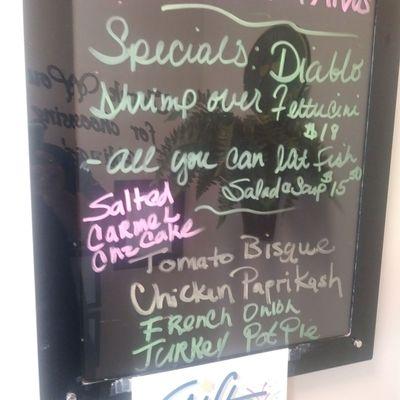 Specials: Diablo
Shrimp over Fettucini
$19
- all you can Eat Fish
Salad & Soup $15.50
Salted
Carmel
Chz Cake
Tomato Bisque
Chicken Paprikash
French Onion
Turkey Pot Pie